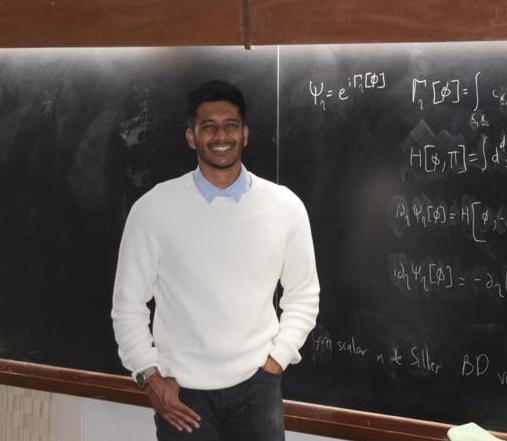 Ψ_η = e^{iΓ_η[ϕ]} Γ_η[ϕ] = ∫
H[ϕ,Π] = ∫ d^d
i∂_η Ψ_η[ϕ] = H[ϕ, -
i∂_η Ψ_η[ϕ] = - ∂_η
free scalar in de Sitter BD